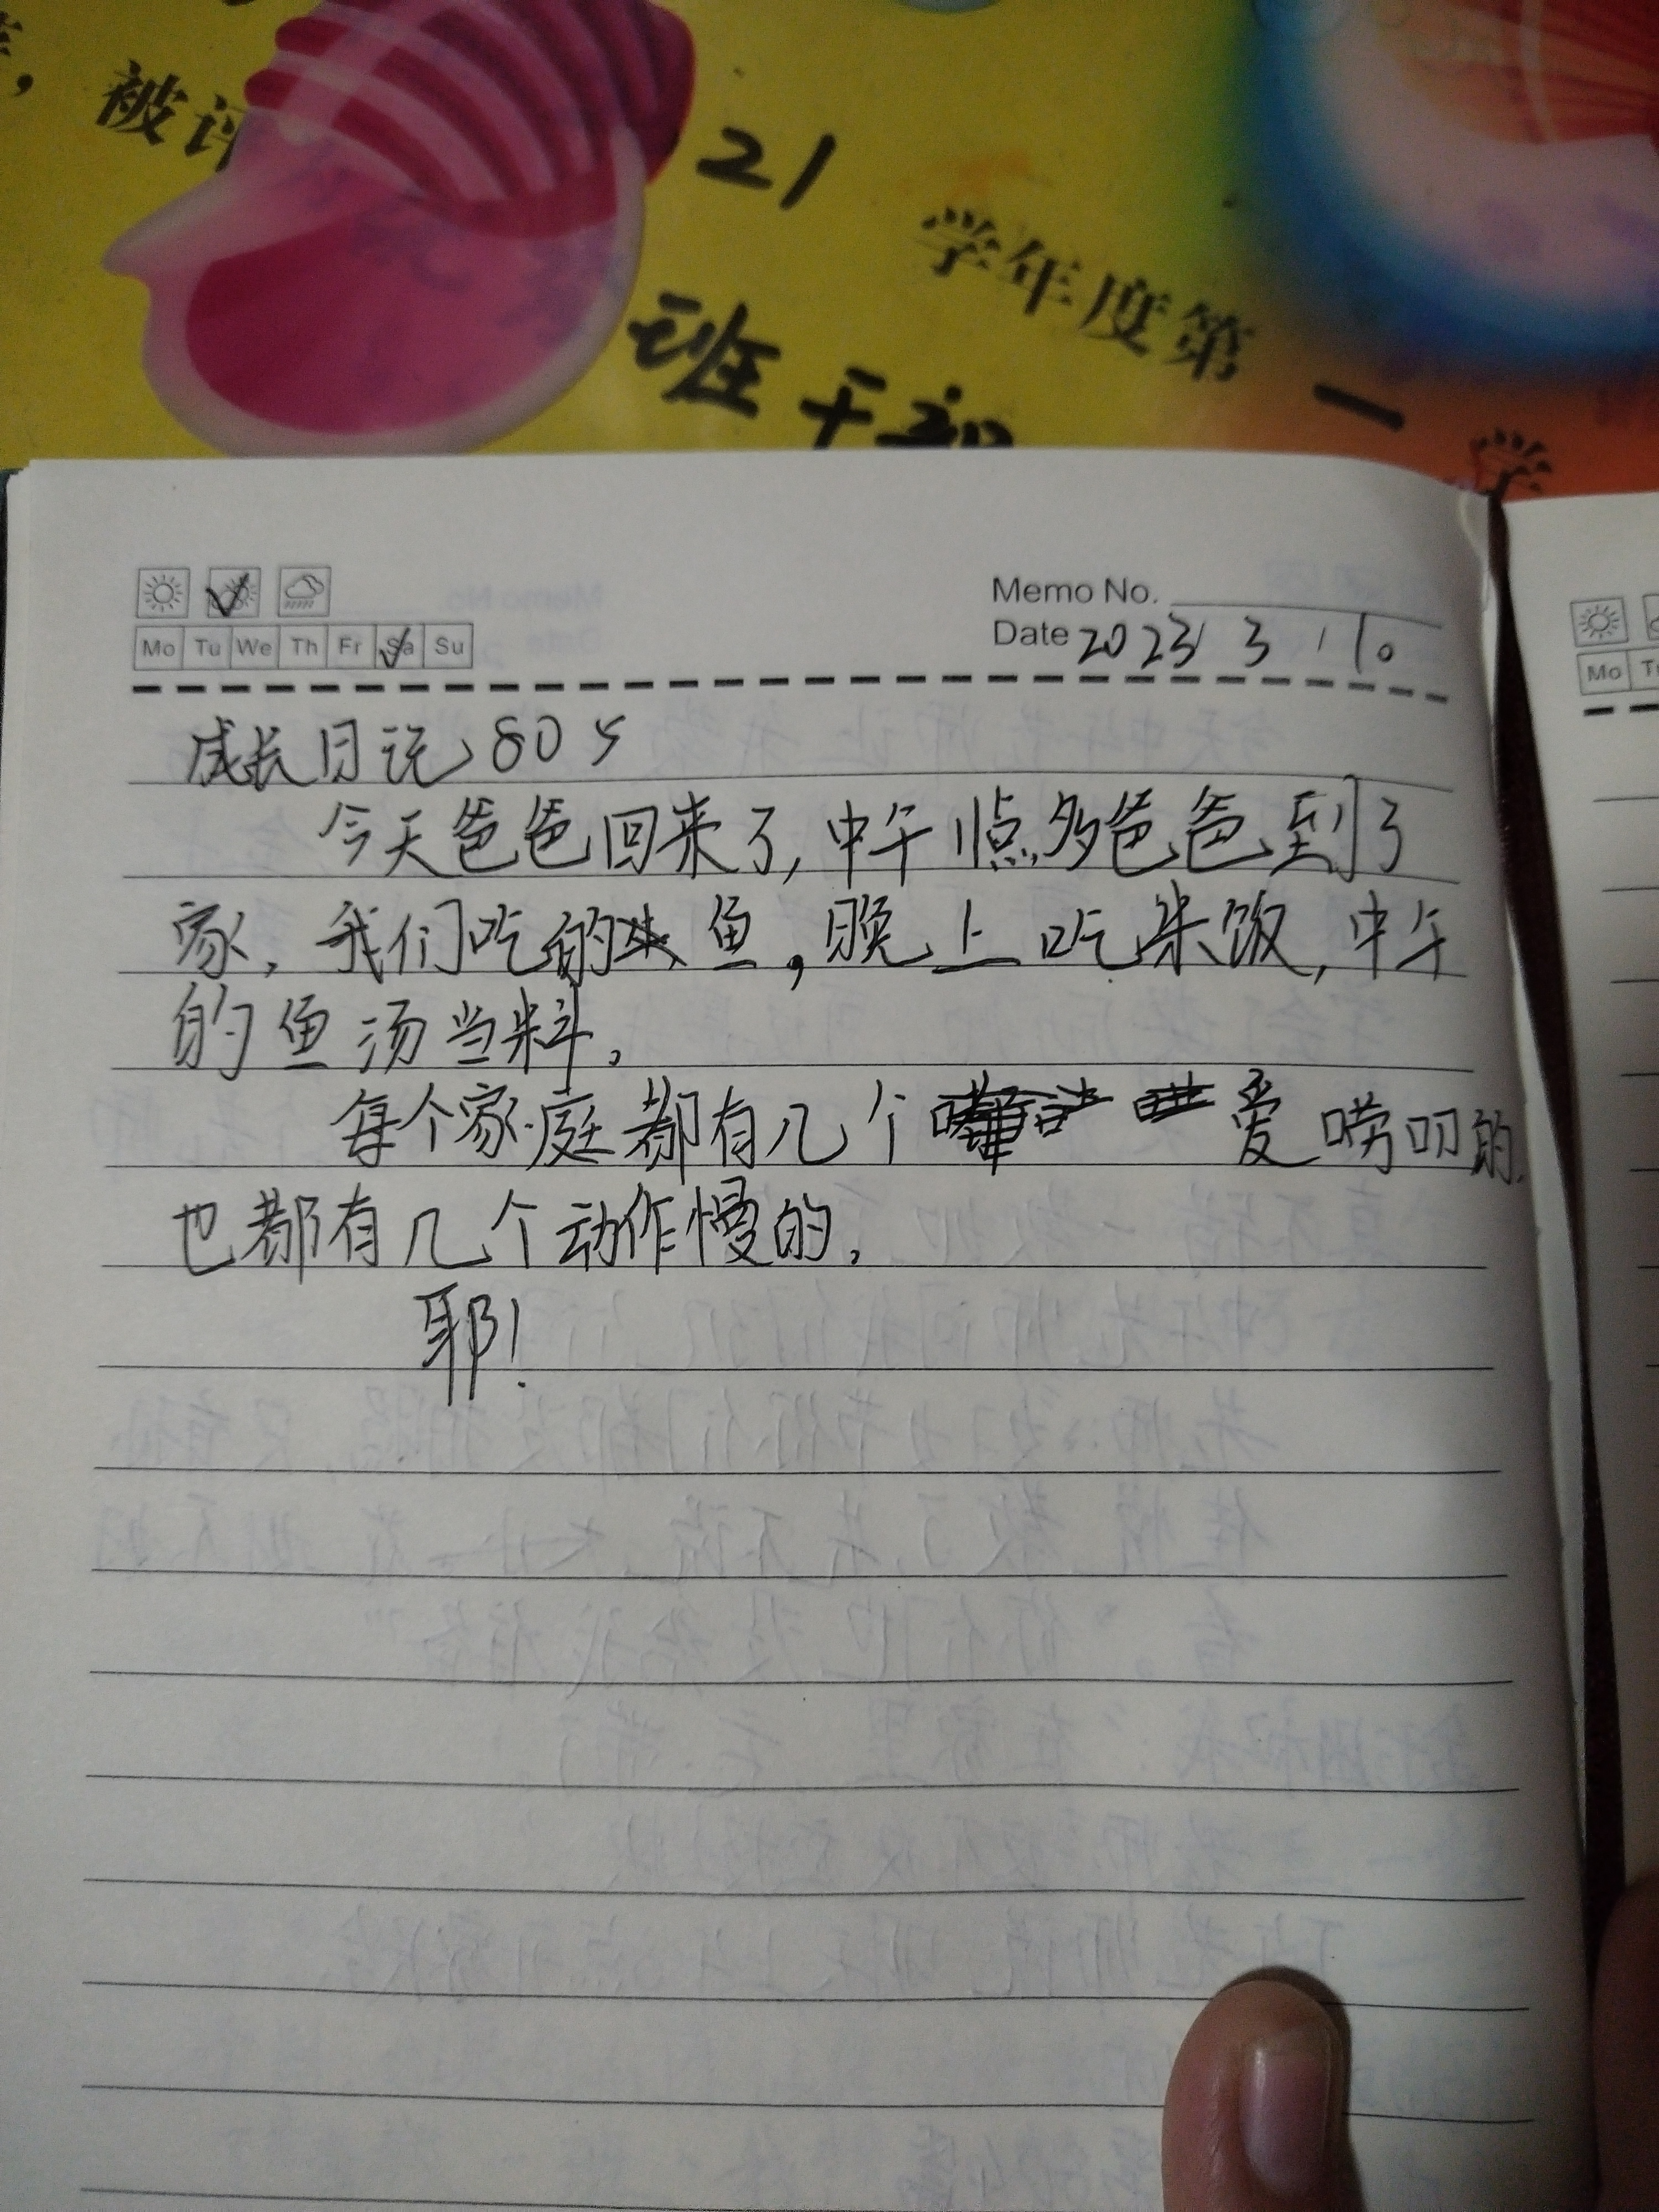 被评
21
学年度第
班干部
一
学
Memo No.
Mo Tu We Th Fr Sa Su
Date 2023 3 10
成长日记 805
今天爸爸回来了,中午1点多爸爸到了
家,我们吃的鱼,晚上吃米饭,中午
的鱼汤当料。
每个家庭都有几个爱唠叨的,
也都有几个动作慢的。
耶!
Mo